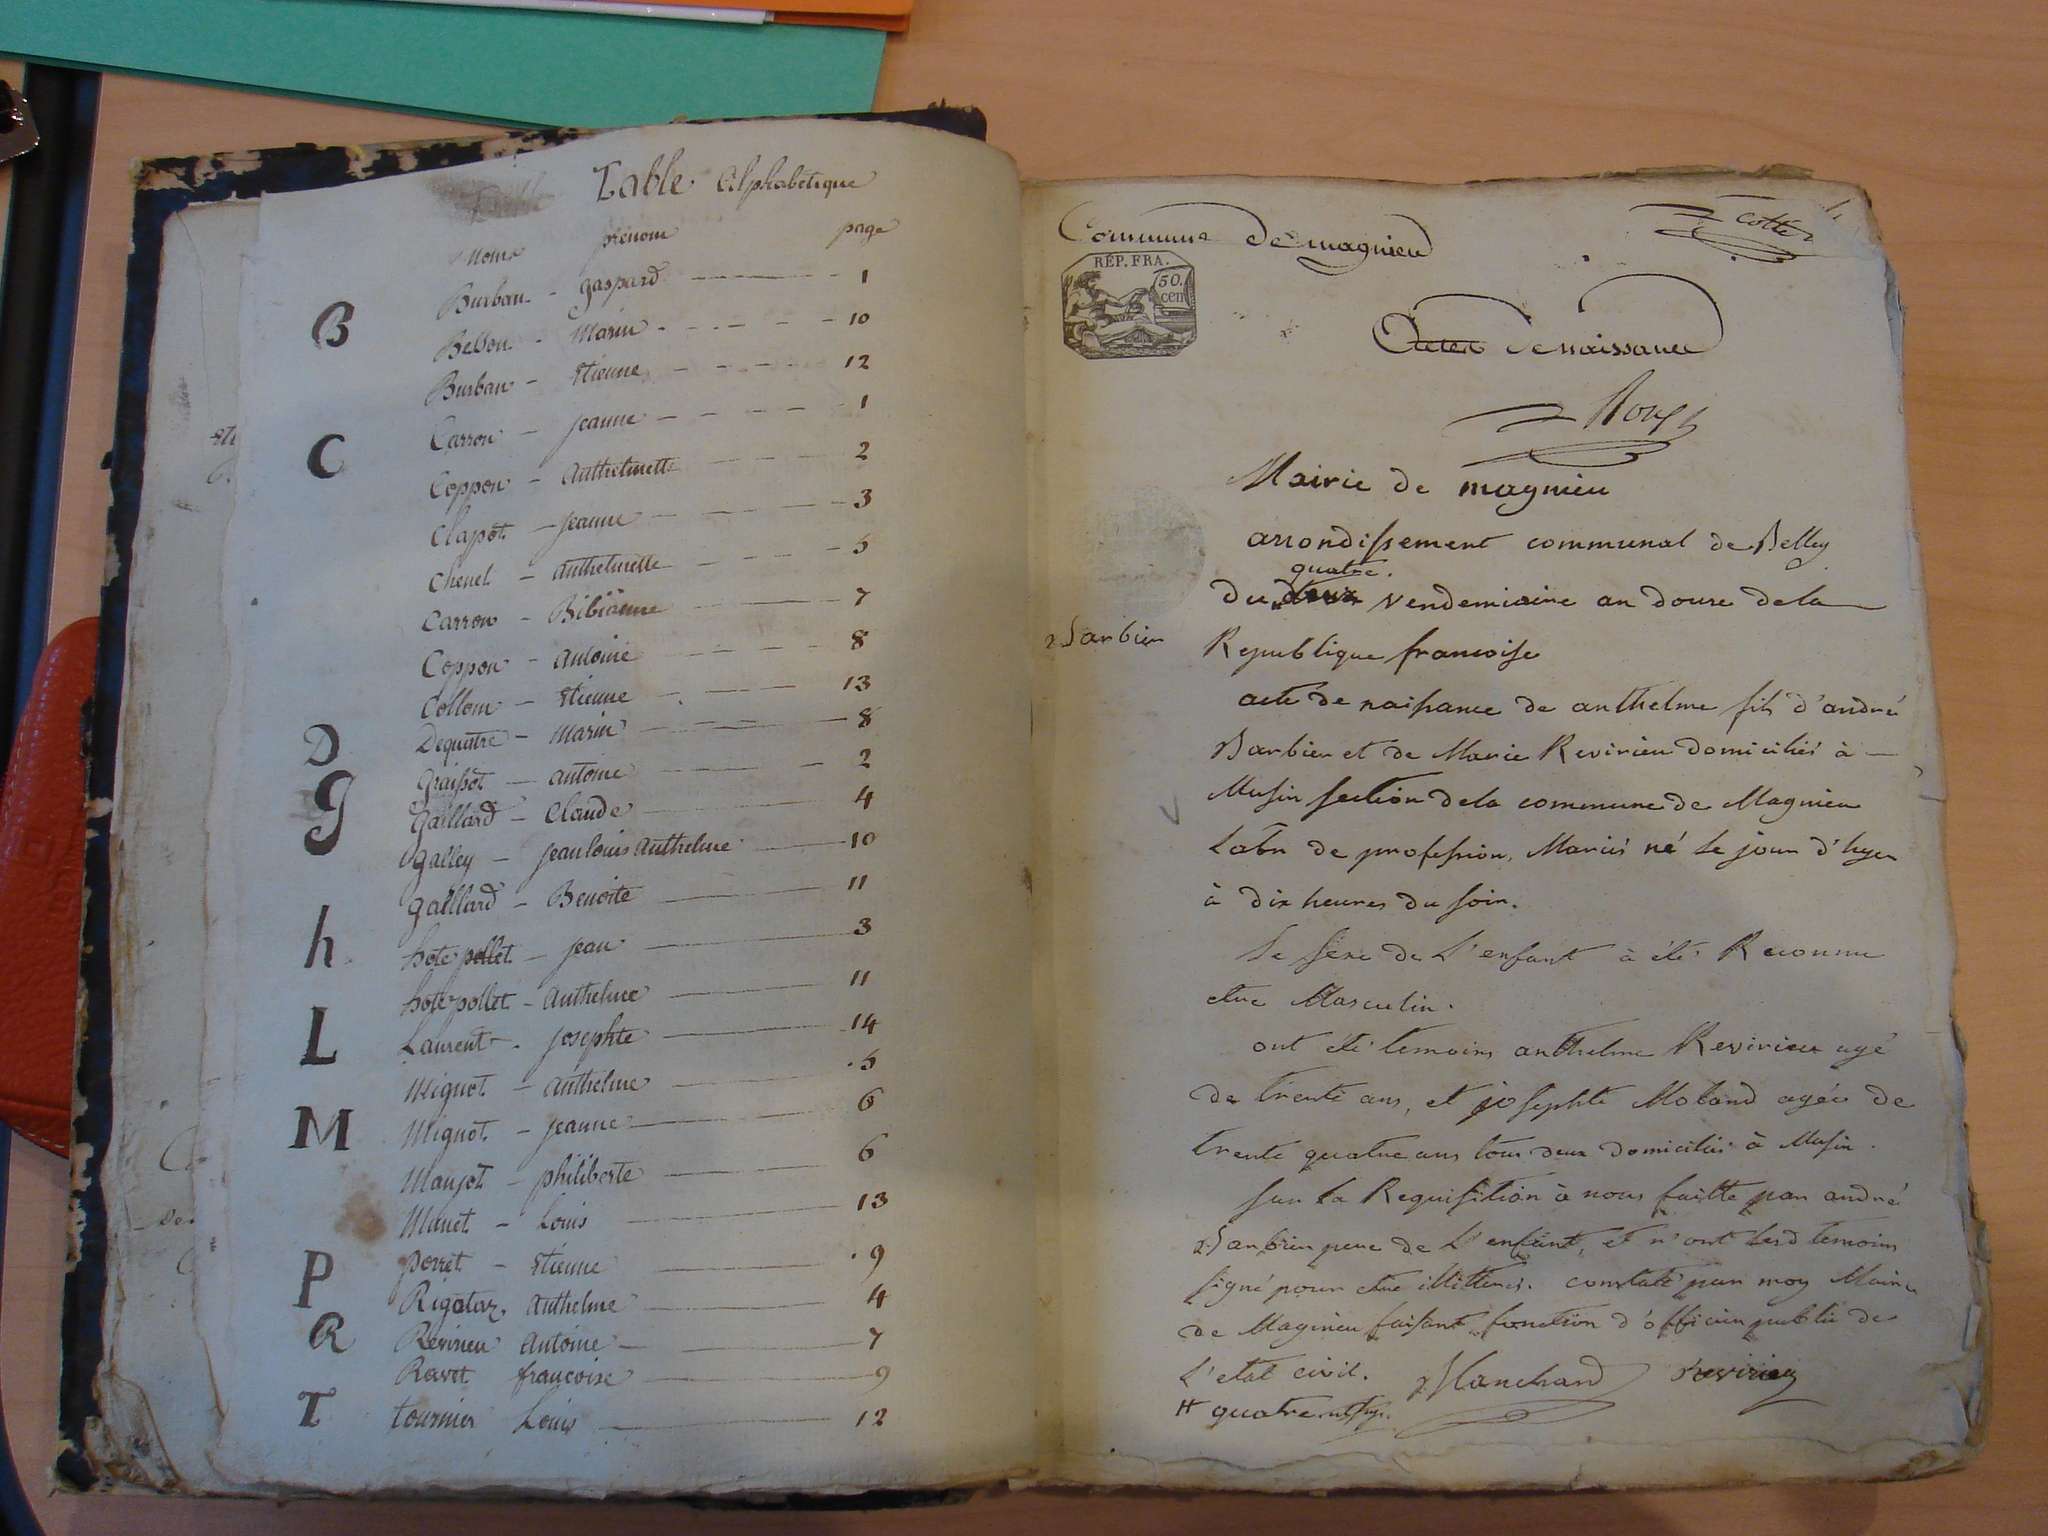 Table Alphabetique
Noms prénom page
B
Burbau - gaspard - 1
Bellou - Marin - 10
Burbau - Etienne - 12
C
Carrou - jeanne - 1
Coppou - Anthelmette - 2
Clapot - jeanne - 3
Chenel - Anthelmette - 5
Carrou - Bibianne - 7
Coppou - Antoine - 8
Collom - Etienne - 13
D
Dequatre - Marin - 8
g
graissot - antoine - 2
gaillard - Claude - 4
galley - jean louis Anthelme - 10
gaillard - Benoite - 11
h
hote pollet - jean - 3
hote pollet - Anthelme - 11
L
Laurent - josephte - 14
M
Mignot - Anthelme - 5
Mignot - jeanne - 6
Maujot - philiberte - 6
Munet - Louis - 13
P
perret - Etienne - 9
R
Rigotaz, Anthelme - 4
Revirieu Antoine - 7
Ravet francoise - 9
T
tournier Louis - 12
Commune de magnieu
cotté
1
RÉP. FRA.
50.
cen
Actes de naissance
Roux
Mairie de magnieu
arrondissement communal de Belley
quatre.
Du deux vendemiaire an douze de la
Barbier
Republique francoise
acte de naissance de anthelme fils d'andré
Barbier et de Marie Revirieu domiciliés à
Musin section de la commune de Magnieu
Labr de profession, Mariés né le jour d'hyer
à dix heures du soir.
Le sexe de L'enfant à été Reconnu
etre Masculin.
ont été temoins anthelme Revirieu agé
de trente ans, et josephte Moland agée de
trente quatre ans tous deux domiciliés à Musin.
sur la Requisition à nous faitte par andré
Barbier pere de L'enfant, et n'ont lesd temoins
signé pour etre illitterés. constaté par moy Maire
de Magnieu faisant fonction d'officier public de
L'etat civil. Blanchard Revirieu
# quatre